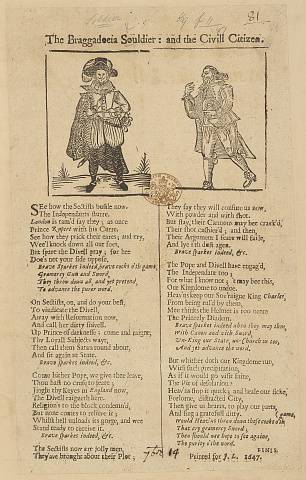 81
The Braggadocia Souldier: and the Civill Citizen.
SEe how the Sectists bustle now,
The Independants sturre,
London is tam'd say they; as once
Prince Rupert with his Curre.
See how they prick their eares; and cry,
Wee'l knock down all our foes,
But spare the Divell pray; for hee
Do's not your side oppose.
Brave Sparkes indeed, brave cocks o'th game,
Gramercy Gun and Sword
They throw down all, and yet pretend,
To advance the purer word.
On Sectists, on, and do your best,
To vindicate the Divell,
Away with Reformation now,
And call her durty snivell.
Up Prince of darknesse; come and raigne;
Thy Loyall Subjects wayt,
Then call them Saints round about,
And sit againe at State.
Brave sparkes indeed, &c.
Come higher Pope, wee give thee leave,
Thou hast no cross to feare;
Jogle thy Keyes in England now,
The Divell raigneth here.
Religion's to the block condemn'd,
But none comes to relieve it;
Whilst hell unloads its gorge, and wee
Stand ready to receive it.
Brave sparkes indeed, &c.
The Sectists now are jolly men,
They have brought about their Plot;
They say they will confute us now,
With powder and with shot.
But stay, their Cannons may bee crack'd,
Their shot cashier'd; and then,
Their Argument I feare will faile,
And bee i'th dust agen.
Brave sparkes indeed, &c.
The Pope and Divell have engag'd,
The Independant too;
For what I know not; 't may bee this,
Our Kingdome to undoe.
Heavens keep our Soveraigne King Charles,
From being rul'd by them,
Mee thinkes the Helmet is too neere
The Princely Diadem.
Brave sparkes indeed when they may then,
With Canon and with Sword,
Un-King our State, un-Church us too,
And yet advance the word.
But whither doth our Kingdome run,
With such precipitation,
As if it would goe visit saite,
The Pit of desolation?
Heaven fixe it quick; and heale our sicke,
Forlorne, distracted City,
Then give us hearts, to play our parts,
And sing a gratefull ditty.
Would Heaven throw down these cocks o'th game,
That cry gramercy Sword;
Then should wee hope to see againe,
The purity o'th word.
FINIS.
Printed for J. L. 1647.